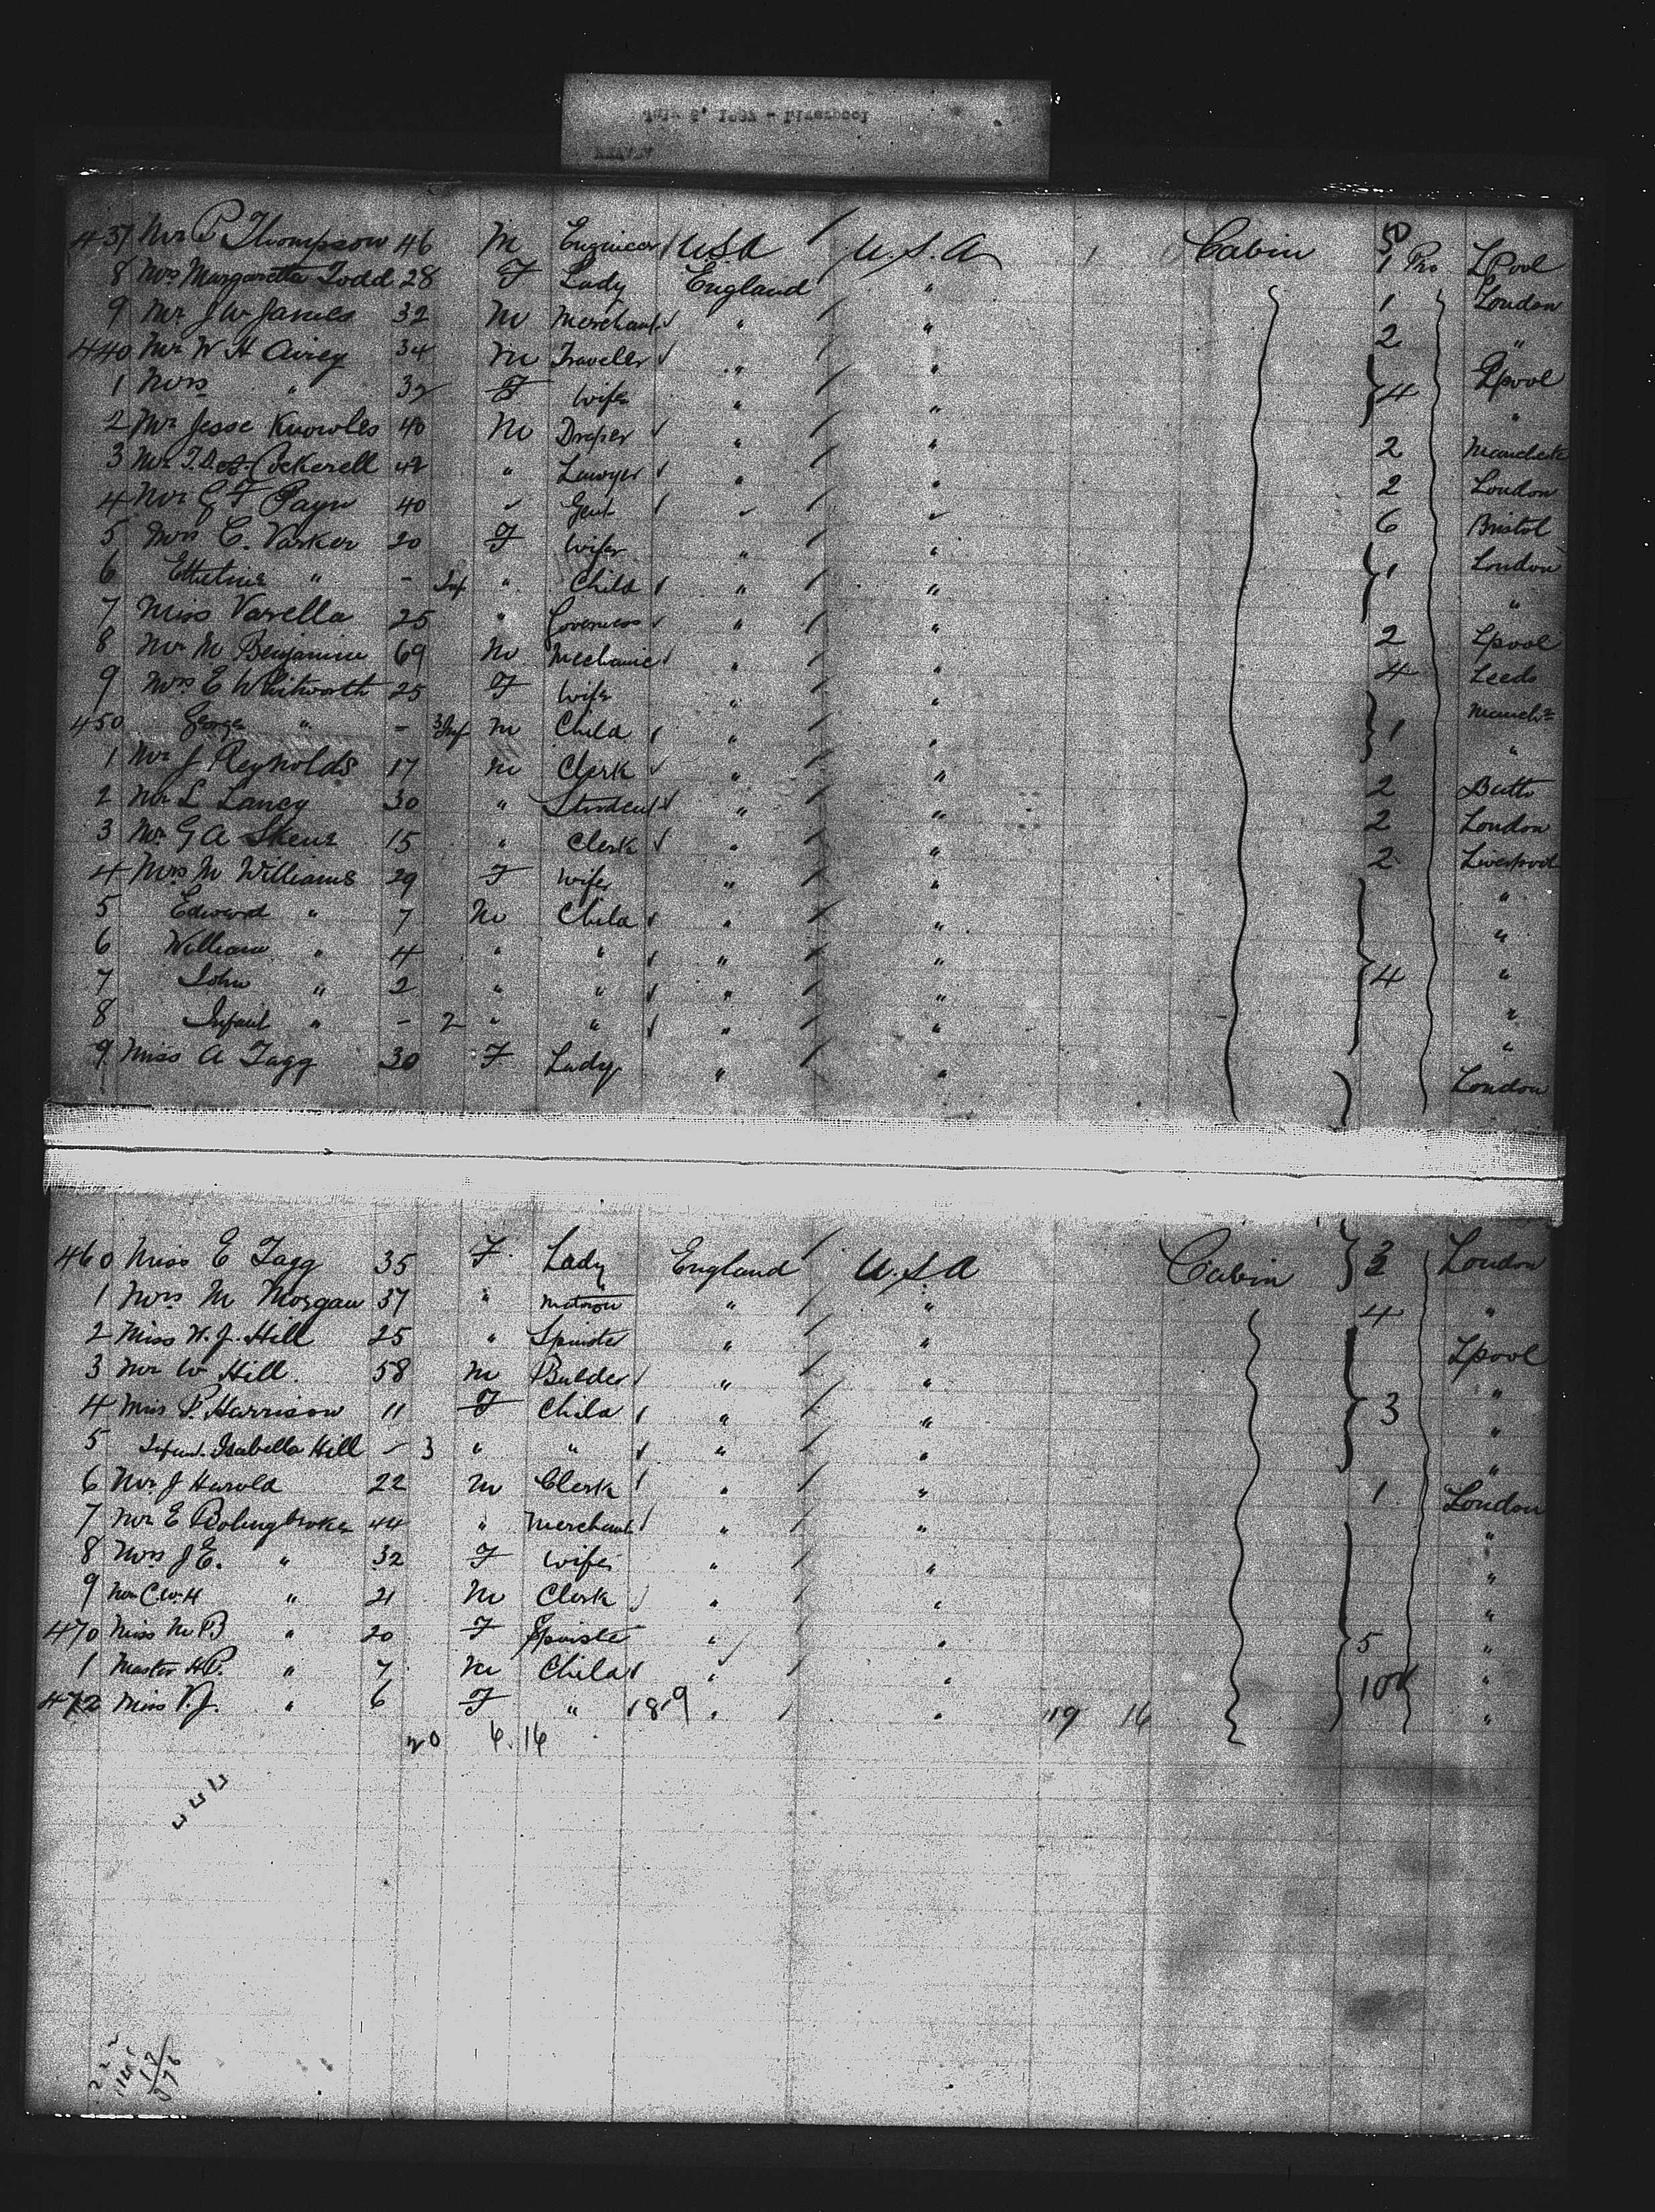 July 5, 1887 - Liverpool
437 Mr P Thompson 46 M Engineer USA U.S.A Cabin 1 Pro LPool
8 Mrs Margaretta Todd 28 F Lady England " 1 London
9 Mr J W James 32 M Merchant " " 2 "
440 Mr W H Airey 34 M Traveller " " Lpool
1 Mrs " 32 F Wife " " 4 "
2 Mr Jesse Knowles 40 M Draper " " 2 Manchester
3 Mr Cockerell 42 " Lawyer " " 2 London
4 Mr G F Payn 40 " Gent " " 6 Bristol
5 Mrs C. Varker 20 F Wife " " London
6 " - " Child " " 1 "
7 Miss Varella 25 " Governess " " 2 Lpool
8 Mr M Benjamin 69 M Mechanic " " 4 Leeds
9 Mrs E Whitworth 25 F Wife " "
450 George " - M Child " " 1 "
1 Mr J Reynolds 17 M Clerk " " 2
2 Mr L Laney 30 " Student " " 2 London
3 Mr G A 15 " Clerk " " 2 Liverpool
4 Mrs M Williams 29 F Wife " " "
5 Edward " 7 M Child " " "
6 William " 4 " " " " "
7 John " 2 " " " " 4 "
8 Infant " - 2 " " " " "
9 Miss A Tagg 30 F Lady " " London
460 Miss E Tagg 35 F. Lady England U.S.A Cabin London
1 Mrs M Morgan 37 " Matron " " 4 "
2 Miss W. J. Hill 25 " Spinster " " Lpool
3 Mr W Hill. 58 M Builder " " "
4 Miss P. Harrison 11 F Child " " 3 "
5 Infant Isabella Hill - 3 " " " " "
6 Mr J Harold 22 M Clerk " " 1 London
7 Mr E Bolingbroke 44 " Merchant " " "
8 Mrs J E. " 32 F Wife " " "
9 Mr C. W. H " 21 M Clerk " " "
470 Miss M B " 20 F Spinster " " 5 "
1 Master H P. " 7 M Child " " "
472 Miss V. J. " 6 F " " " 19 16 "
20 6. 14